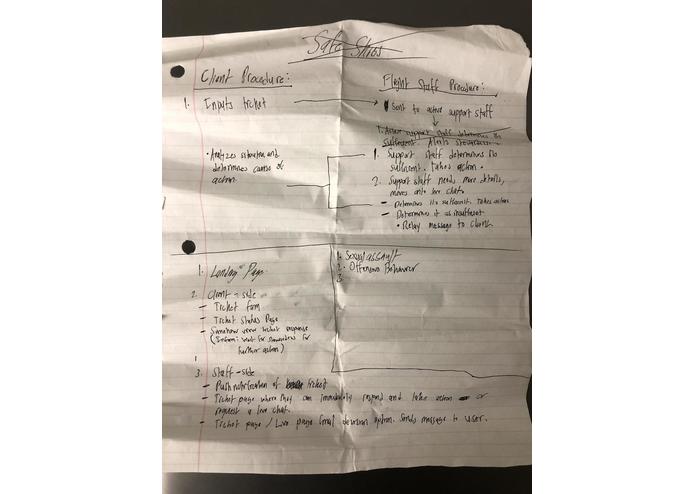 Safe Skies
Client Procedure:
Flight Staff Procedure:
1. Inputs ticket
Sent to active support staff
1. Active support staff determines its
sufficient. Alerts
• Analyzes situation and
determines cause of
action.
1. Support staff determines its
sufficient. Takes action.
2. Support staff needs more details,
moves onto live chat.
- Determines its sufficient. Takes action
- Determines it as insufficient
• Relay message to client
1. Landing Page
2. Client-side
- Ticket form
- Ticket Status Page
- Somehow view ticket response
(Inform: wait for for
further action)
1
3. Staff-side
- Push notification of ticket
- Ticket page where they can immediately respond and take action or
request a live chat.
- Ticket page / Live page final decision option. Sends message to user.
1. Sexual assault
2. Offensive Behaviour
3.